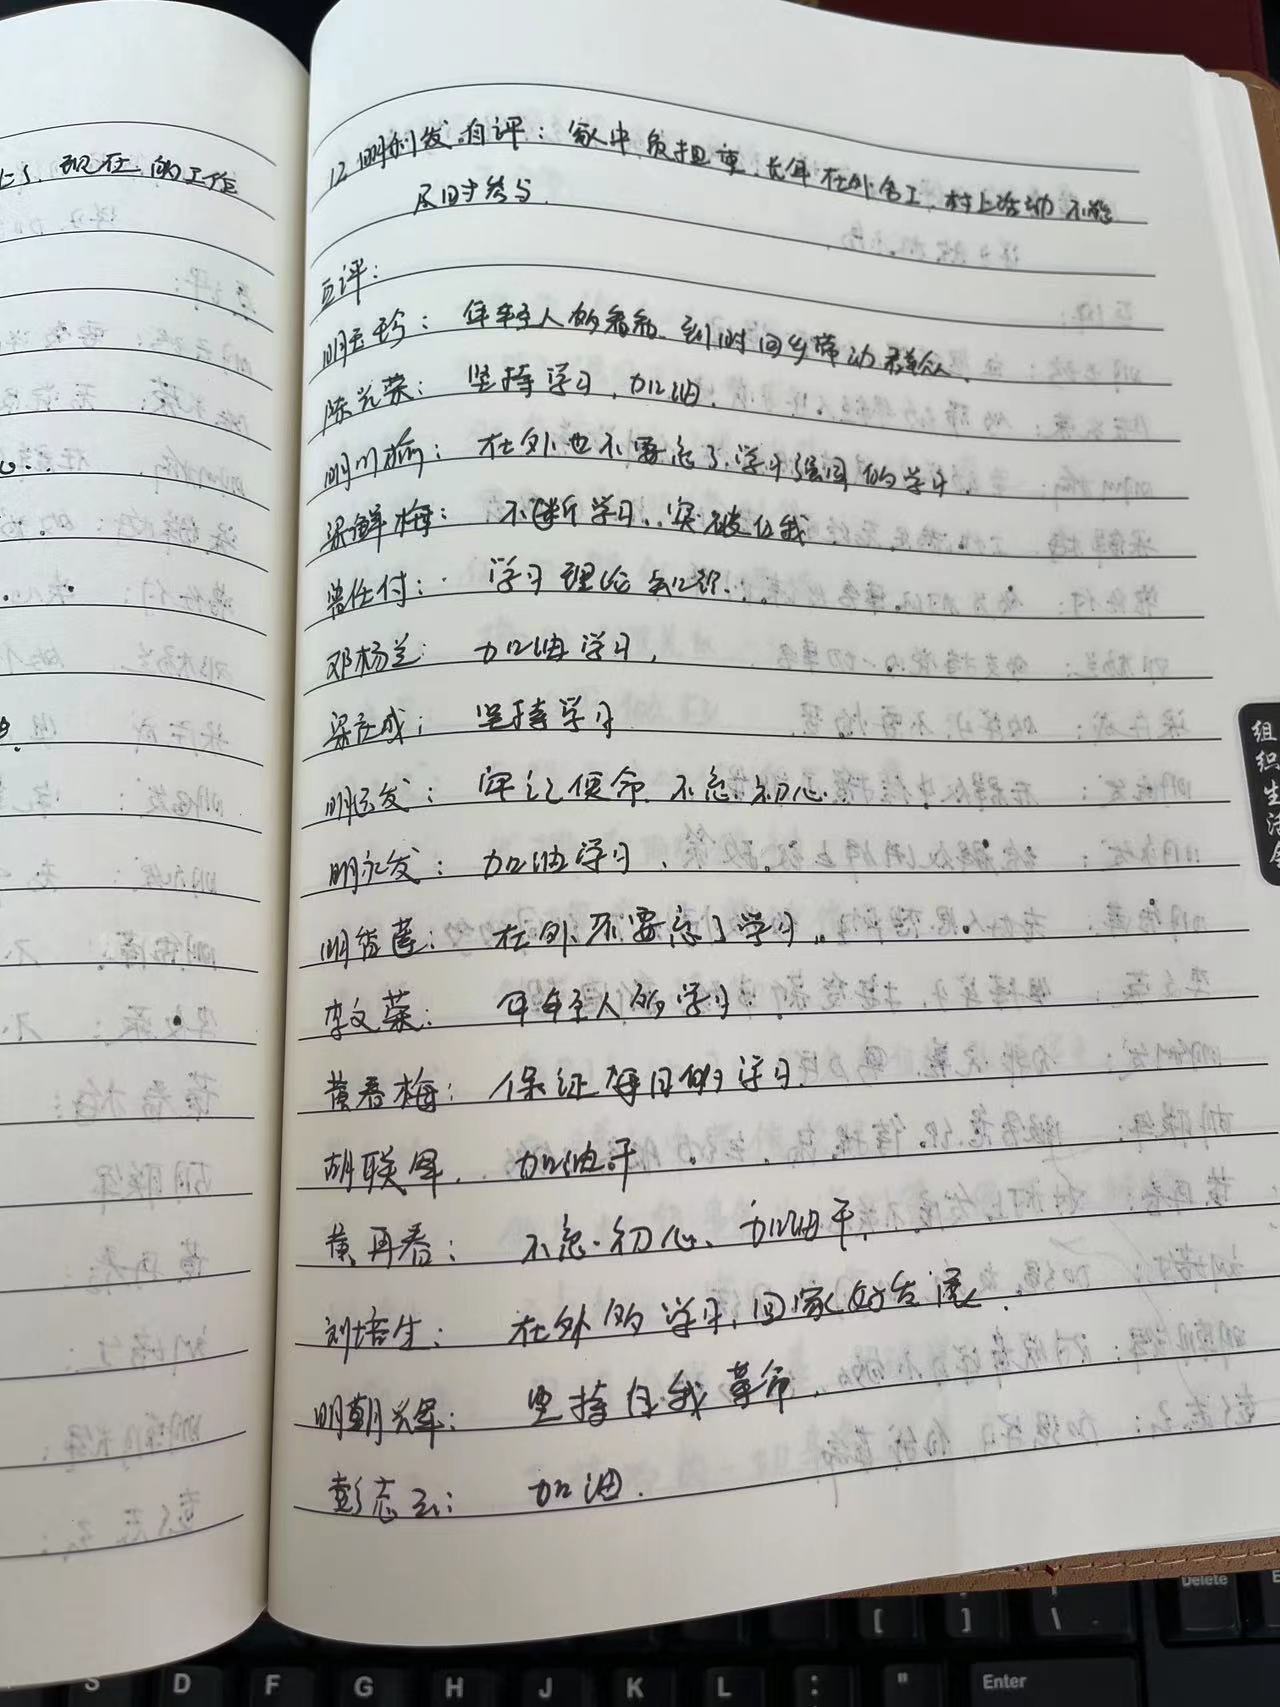 现在的工作
12.明利发自评：家中负担重，长年在外务工，村上活动不能
及时参与.
互评：
明玉珍：年轻人的看看，到时回乡带动群众.
陈光荣：坚持学习，加油.
明川瑜：在外也不要忘了学习强国的学习.
梁鲜梅：不断学习，突破自我
曾任付：学习理论知识.
邓杨兰：加油学习，
梁在成：坚持学习
明运发：牢记使命、不忘初心
明永发：加油学习.
明世莲：在外不要忘了学习.
李文荣：年轻人的学习.
黄春梅：保证每日的学习.
胡联军，加油干
黄再春：不忘初心、加油干，
刘培生：在外的学习，回家好发展.
明朝光军：坚持自我革命，
彭志云：加油.
组织生活会
Delete
[
]
\
S D F G H J K L : " Enter